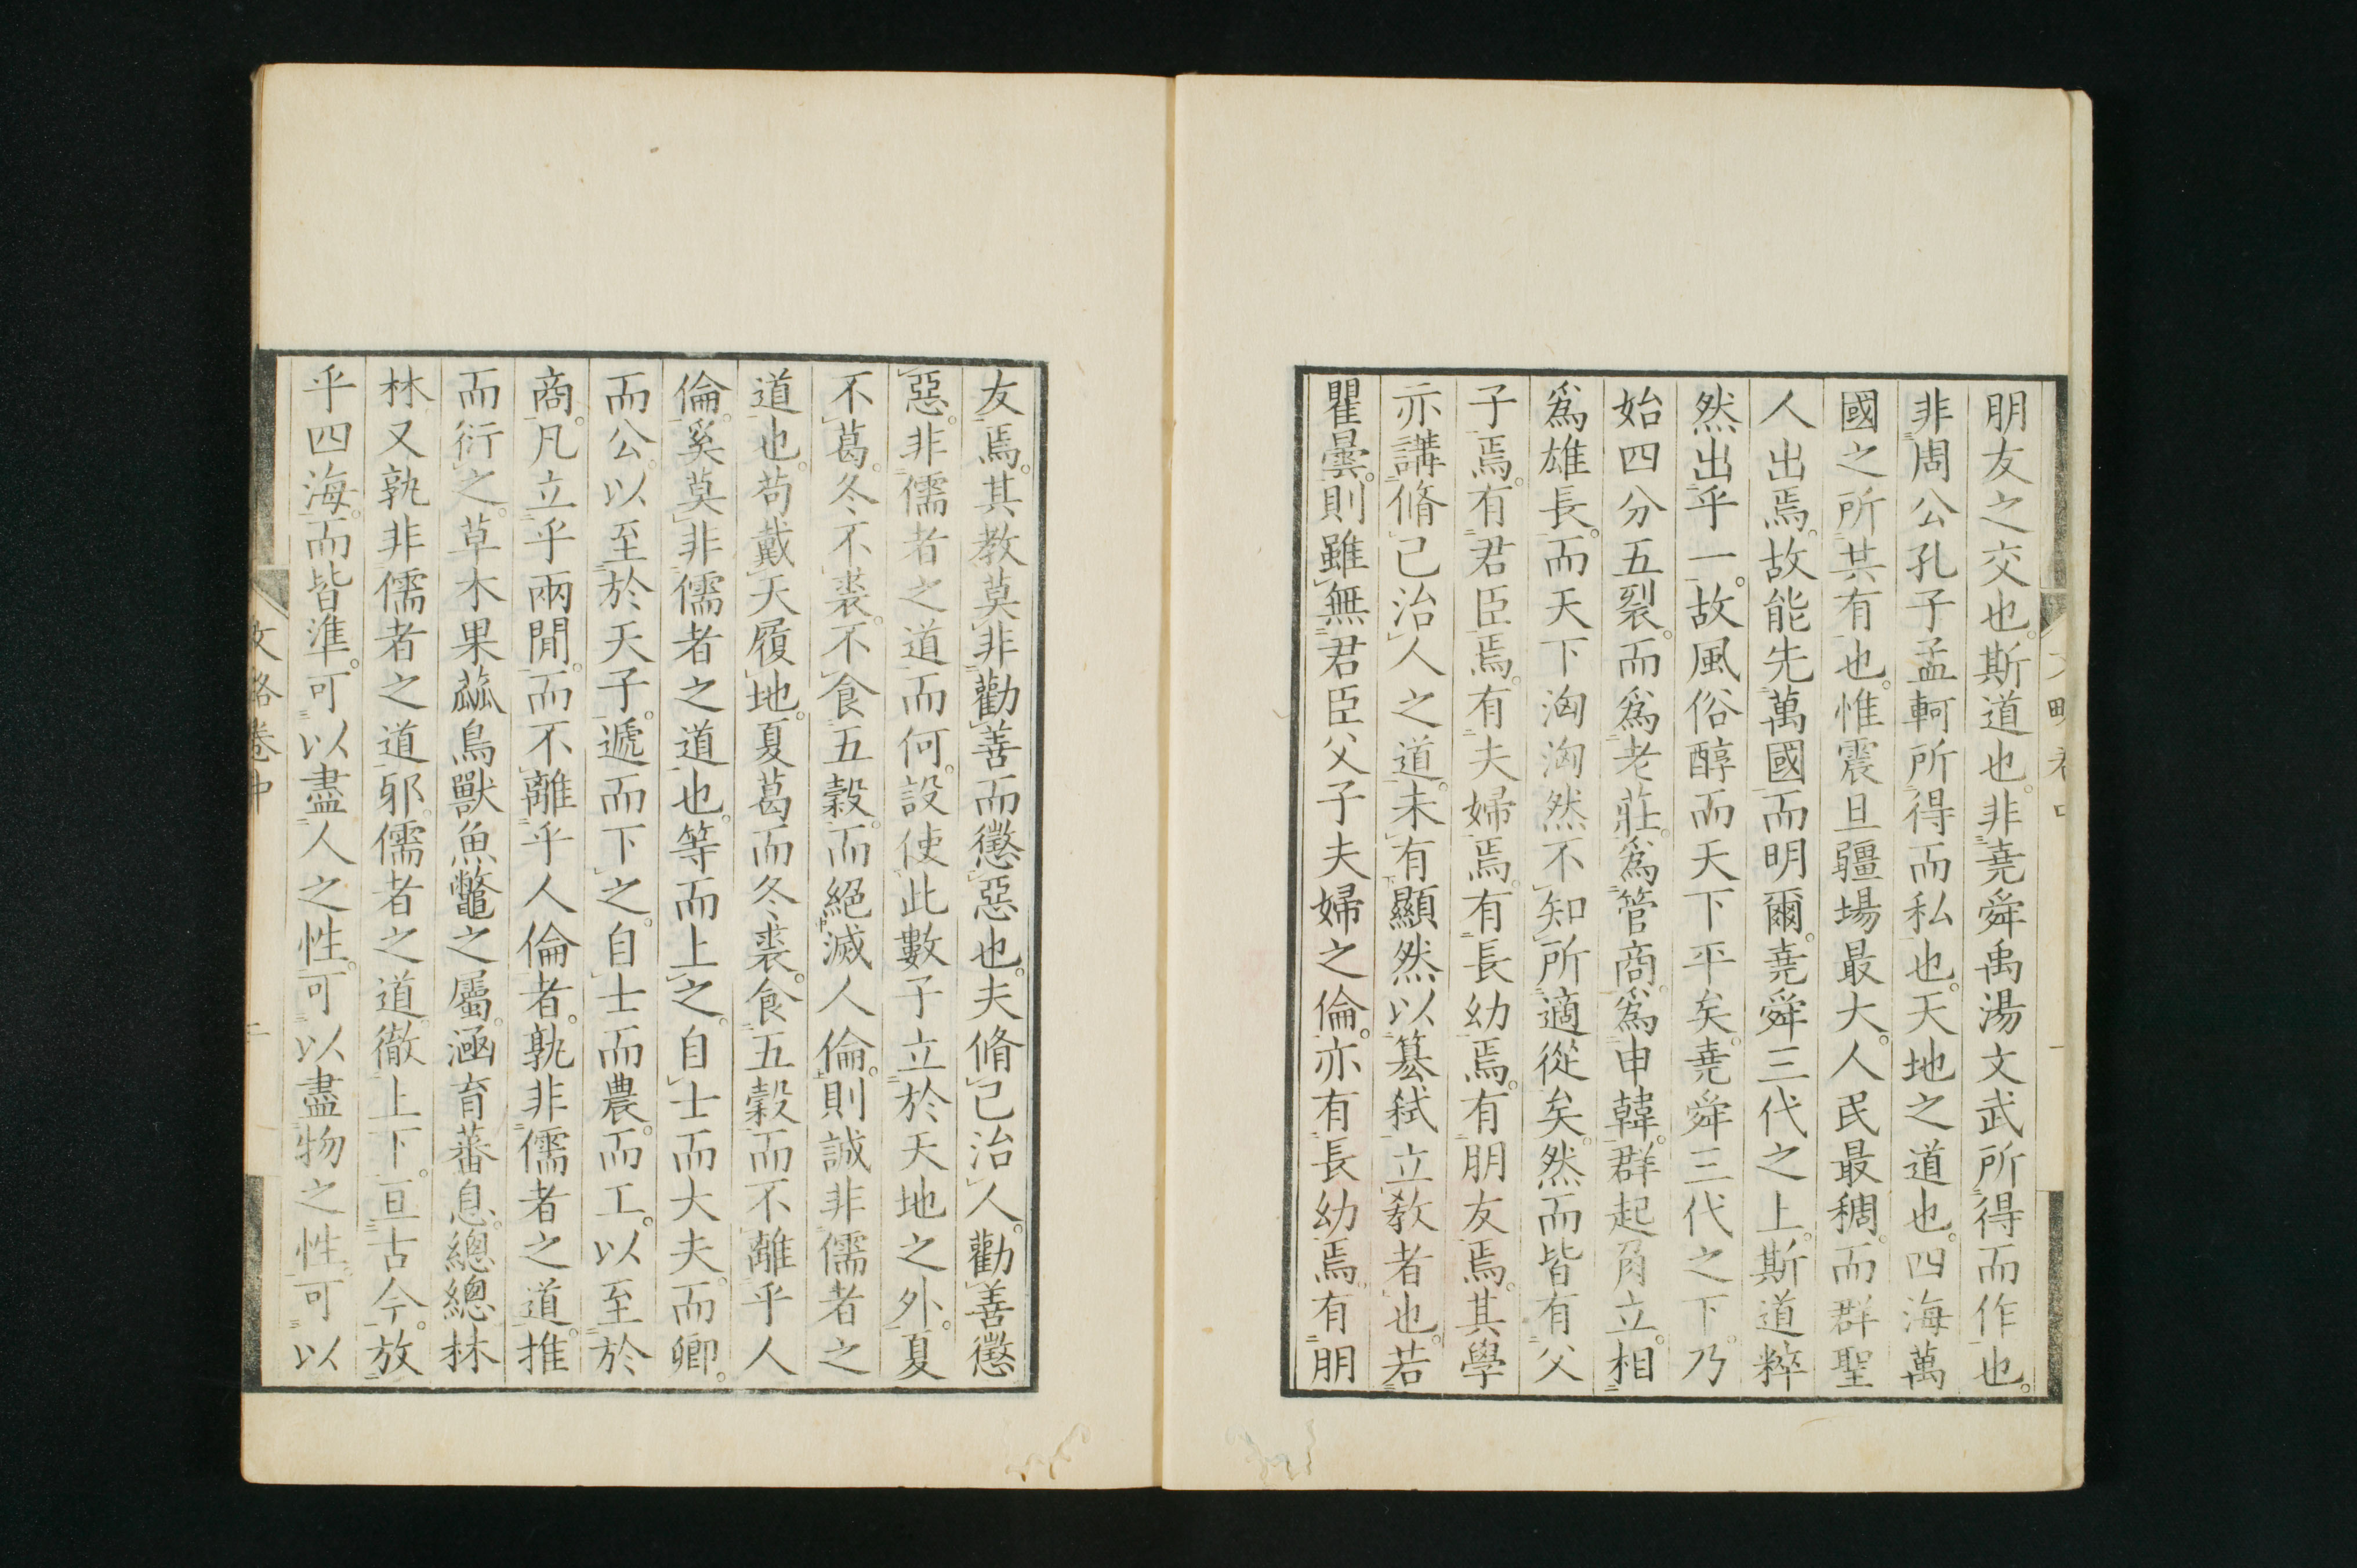 朋友之交也。斯道也。非堯舜禹湯文武所得而作也。
非周公孔子孟軻所得而私也。天地之道也。四海萬
國之所共有也。惟震旦疆場最大。人民最稠。而群聖
人出焉。故能先萬國而明爾。堯舜三代之上。斯道粹
然出乎一。故風俗醇而天下平矣。堯舜三代之下。乃
始四分五裂。而爲老莊。爲管商。爲申韓。群起角立。相
爲雄長。而天下洶洶然不知所適從矣。然而皆有父
子焉。有君臣焉。有夫婦焉。有長幼焉。有朋友焉。其學
亦講脩己治人之道。未有顯然以簒弑立敎者也。若
瞿曇。則雖無君臣父子夫婦之倫。亦有長幼焉。有朋
友焉。其教莫非勸善而懲惡也。夫脩己治人。勸善懲
惡。非儒者之道而何。設使此數子立於天地之外。夏
不葛。冬不裘。不食五穀。而絕滅人倫。則誠非儒者之
道也。苟戴天履地。夏葛而冬裘。食五穀而不離乎人
倫。奚莫非儒者之道也。等而上之。自士而大夫。而卿。
而公。以至於天子。遞而下之。自士而農。而工。以至於
商。凡立乎兩閒。而不離乎人倫者。孰非儒者之道。推
而衍之。草木果蓏鳥獸魚鼈之屬。涵育蕃息。總總林
林又孰非儒者之道邪。儒者之道。徹上下。亘古今。放
乎四海。而皆準。可以盡人之性。可以盡物之性。可以
文略卷中
二